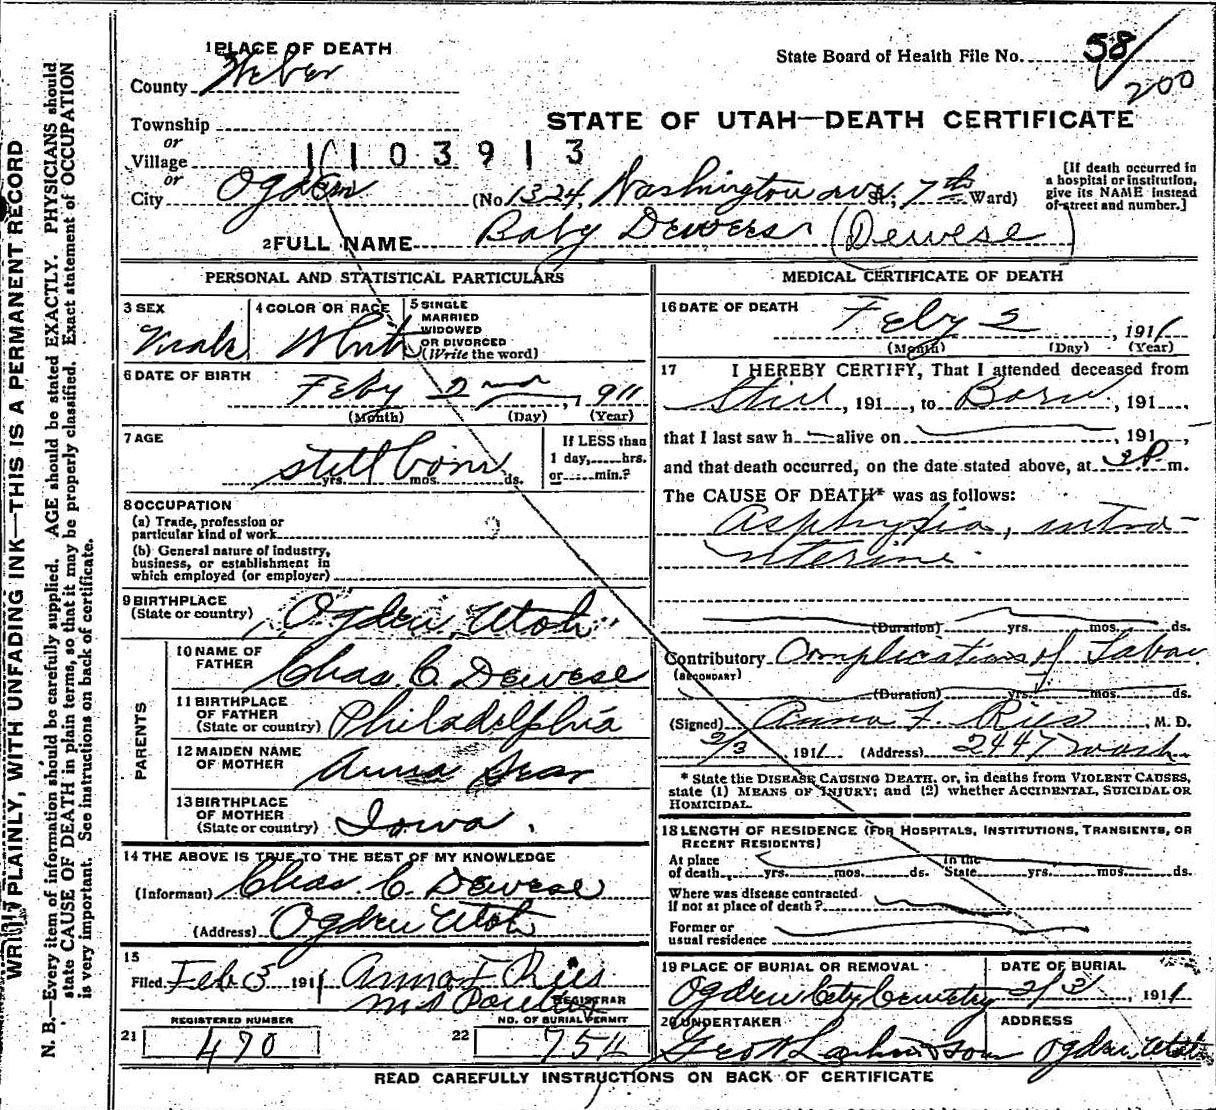 WRITE PLAINLY, WITH UNFADING INK—THIS IS A PERMANENT RECORD
N. B.—Every item of information should be carefully supplied. AGE should be stated EXACTLY. PHYSICIANS should
state CAUSE OF DEATH in plain terms, so that it may be properly classified. Exact statement of OCCUPATION
is very important. See instructions on back of certificate.
1 PLACE OF DEATH
County Weber
State Board of Health File No. 58
200
Township
or
Village
1103913
STATE OF UTAH—DEATH CERTIFICATE
or
City Ogden (No. 1324, Washington ave St; 7th Ward)
[If death occurred in
a hospital or institution,
give its NAME instead
of street and number.]
2 FULL NAME Baby Dewees (Dewese)
PERSONAL AND STATISTICAL PARTICULARS
3 SEX
Male
4 COLOR OR RACE
White
5 SINGLE
MARRIED
WIDOWED
OR DIVORCED
(Write the word)
6 DATE OF BIRTH
Feby 2nd, 1911
(Month) (Day) (Year)
7 AGE
still born
yrs. mos. ds.
If LESS than
1 day, hrs.
or min.?
8 OCCUPATION
(a) Trade, profession or
particular kind of work
(b) General nature of industry,
business, or establishment in
which employed (or employer)
9 BIRTHPLACE
(State or country) Ogden, Utah
PARENTS
10 NAME OF
FATHER Chas. C. Dewese
11 BIRTHPLACE
OF FATHER
(State or country) Philadelphia
12 MAIDEN NAME
OF MOTHER Anna
13 BIRTHPLACE
OF MOTHER
(State or country) Iowa.
14 THE ABOVE IS TRUE TO THE BEST OF MY KNOWLEDGE
(Informant) Chas. C. Dewese
(Address) Ogden Utah
15
Filed Feb 3 1911 Anna F Ries
REGISTRAR
REGISTERED NUMBER
21 470
NO. OF BURIAL PERMIT
22
MEDICAL CERTIFICATE OF DEATH
16 DATE OF DEATH
Feby 2, 1911
(Month) (Day) (Year)
17 I HEREBY CERTIFY, That I attended deceased from
Still, 191 , to Born, 191 ,
that I last saw h alive on , 191 ,
and that death occurred, on the date stated above, at 3 P m.
The CAUSE OF DEATH* was as follows:
Asphyxia, intra-
uterine.
(Duration) yrs. mos. ds.
Contributory Complications of Labor
(SECONDARY)
(Duration) yrs. mos. ds.
(Signed) Anna F. Ries, M. D.
2/3 1911 (Address) 2447 Wash.
* State the DISEASE CAUSING DEATH, or, in deaths from VIOLENT CAUSES,
state (1) MEANS OF INJURY; and (2) whether ACCIDENTAL, SUICIDAL OR
HOMICIDAL.
18 LENGTH OF RESIDENCE (FOR HOSPITALS, INSTITUTIONS, TRANSIENTS, OR
RECENT RESIDENTS)
At place
of death yrs. mos. ds. In the
State yrs. mos. ds.
Where was disease contracted
if not at place of death?
Former or
usual residence
19 PLACE OF BURIAL OR REMOVAL
Ogden City Cemetery
DATE OF BURIAL
2/3, 1911
20 UNDERTAKER
Geo W Larkin & Son
ADDRESS
Ogden Utah
READ CAREFULLY INSTRUCTIONS ON BACK OF CERTIFICATE